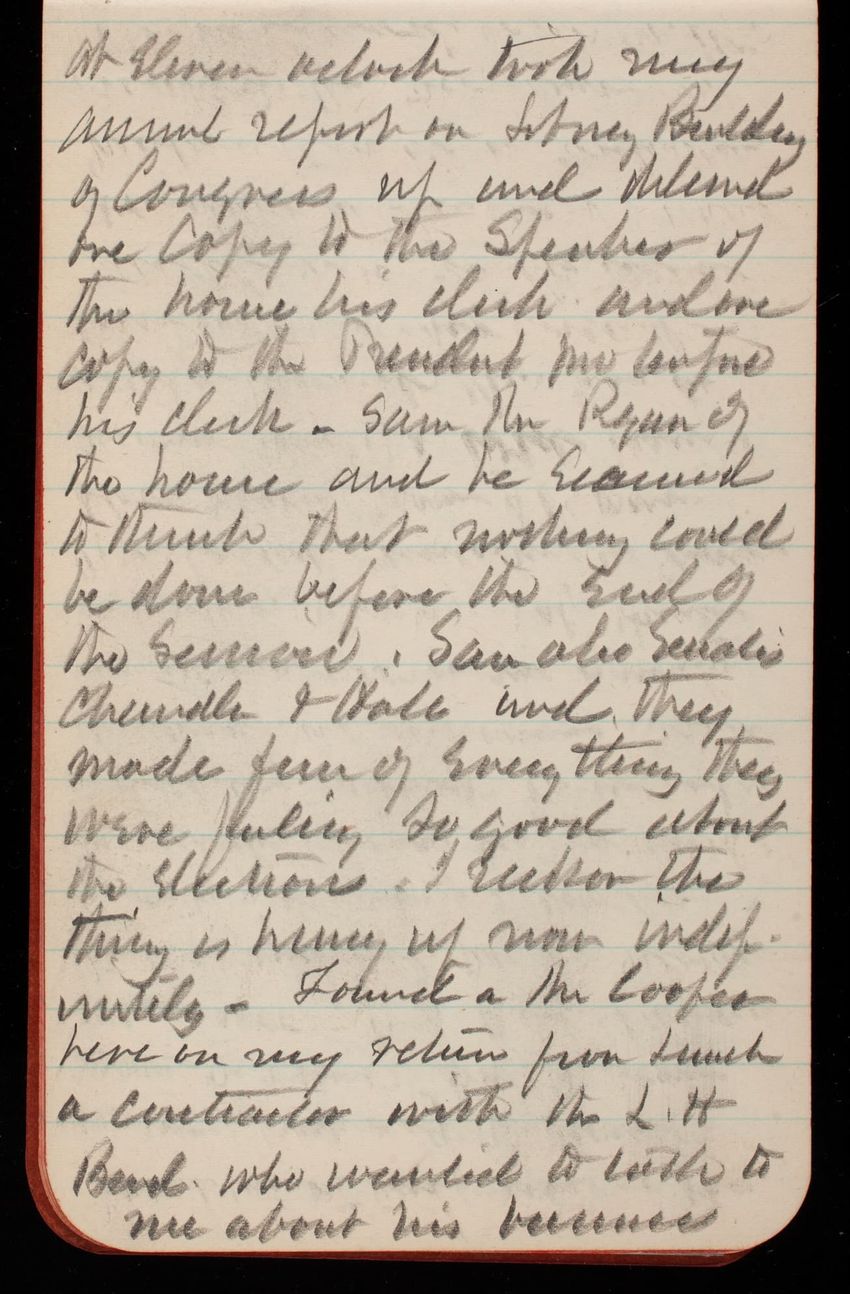 At Eleven oclock took my
annual report on Library Building
of Congress up and delivered
one Copy to the Speaker of
the house his clerk and one
copy to the President pro tempore
his clerk - Saw Mr Ryan of
the house and he Seamed
to think that nothing could
be done before the End of
the Session. Saw also Senators
Chandler & Hale and they
made fun of Everything they
were feeling So good about
the Elections. I reckon the
thing is hung up now indef-
initely - Found a Mr Cooper
here on my return from Lunch
a contractor with the L. H
Board who wanted to talk to
me about his business